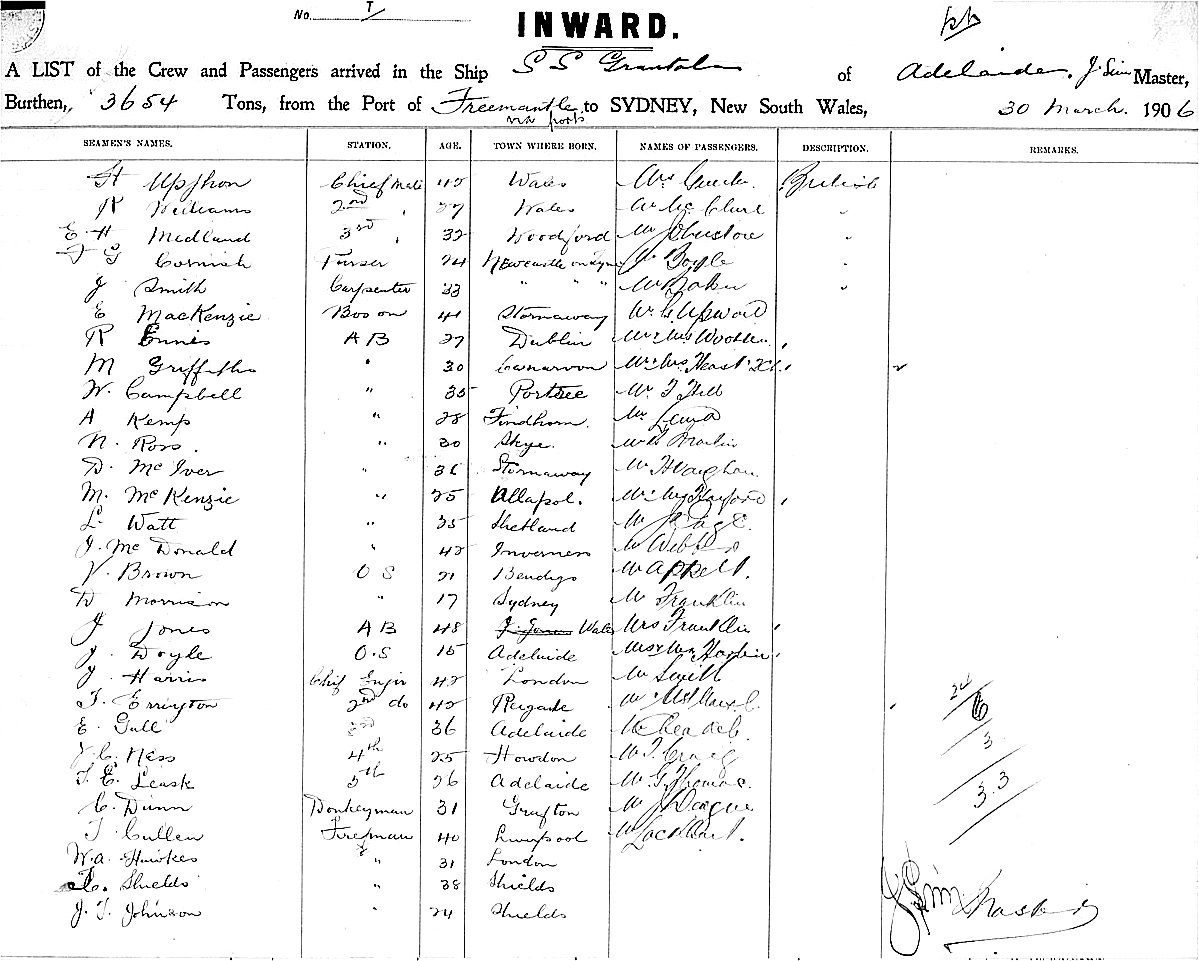 No. T/
INWARD.
A LIST of the Crew and Passengers arrived in the Ship S S Grantala of Adelaide, J Sim Master,
Burthen, 3654 Tons, from the Port of Freemantle via ports to SYDNEY, New South Wales, 30 March. 1906
SEAMEN'S NAMES. STATION. AGE. TOWN WHERE BORN. NAMES OF PASSENGERS. DESCRIPTION. REMARKS.
H Upjhon Chief Mate 42 Wales Mrs British
R Williams 2nd " 27 Wales Mr McClure "
E. H Medland 3rd " 32 Woodford Mr Johnstone "
F G Cornish Purser 24 Newcastle on Tyne Mr Boyle "
J Smith Carpenter 33 " " " Mr Baker "
E MacKenzie Boson 41 Stornaway Mr C Upward
R Ennis A B 27 Dublin Mr & Mrs
M Griffiths " 30 Canarvon Mr & Mrs
W. Campbell " 35 Portree Mr F Hill
A Kemp " 28 Findhorn. Mr
N. Ross. " 30 Skye. Mr
D. McIver " 36 Stornaway Mr H Vaughan
M. McKenzie " 25 Ullapol. Mr & Mrs
L. Watt " 35 Shetland Mr J Page.
J. McDonald " 42 Inverness Mr Webb
V. Brown O S 21 Bendigo Mr Appelt.
D Morrison " 17 Sydney Mr Franklin
J Jones A B 48 Wales Mrs Franklin
J. Doyle O.S 15 Adelaide
J. Harris Chief Engir 42 London Mr Smith
T. Errington 2nd do 42 Reigate Mr
E. Gull 3rd 36 Adelaide Mr Cheadle.
J. C. Ness 4th 25 Howdon Mr T. Craig
T. E. Leask 5th 26 Adelaide Mr G. Thomas.
C. Dunn Donkeyman 31 Grafton Mr J Dague
T Cullen Fireman 40 Liverpool Mr Lockhart.
W. A. Hawkes " 31 London
Shields " 38 Shields
J. T. Johnson " 24 Shields
24/6
3
33
J Sim Master